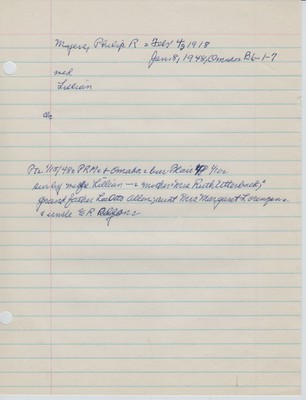 Myers, Philip R Feby 4, 1918
Jan 8, 1948, Omaha B6-1-7
md
Lillian
Pt 1/10/48 PRM Omaha bur Blair
surv by wife Lillian mother Mrs Ruth Utterback,
grand father Otto Allen, aunt Mrs Margaret Lorenzen
uncle E R